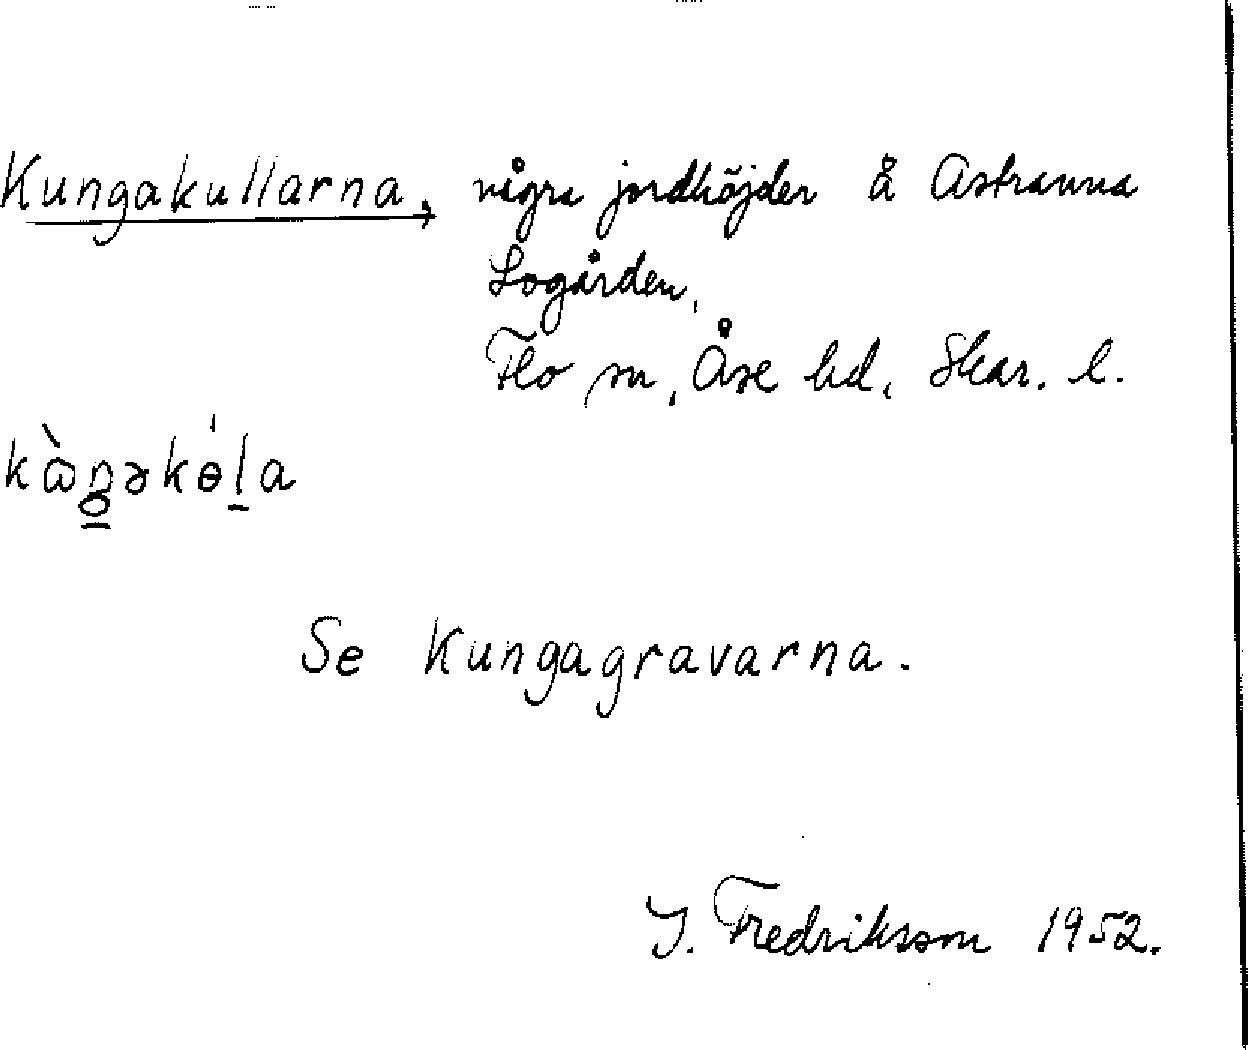 Kungakullarna, några jordhöjder å Astranna
Logården,
Flo sn, Åse hd, Skar. l.
Se Kungagravarna.
J. Fredriksson 1952.